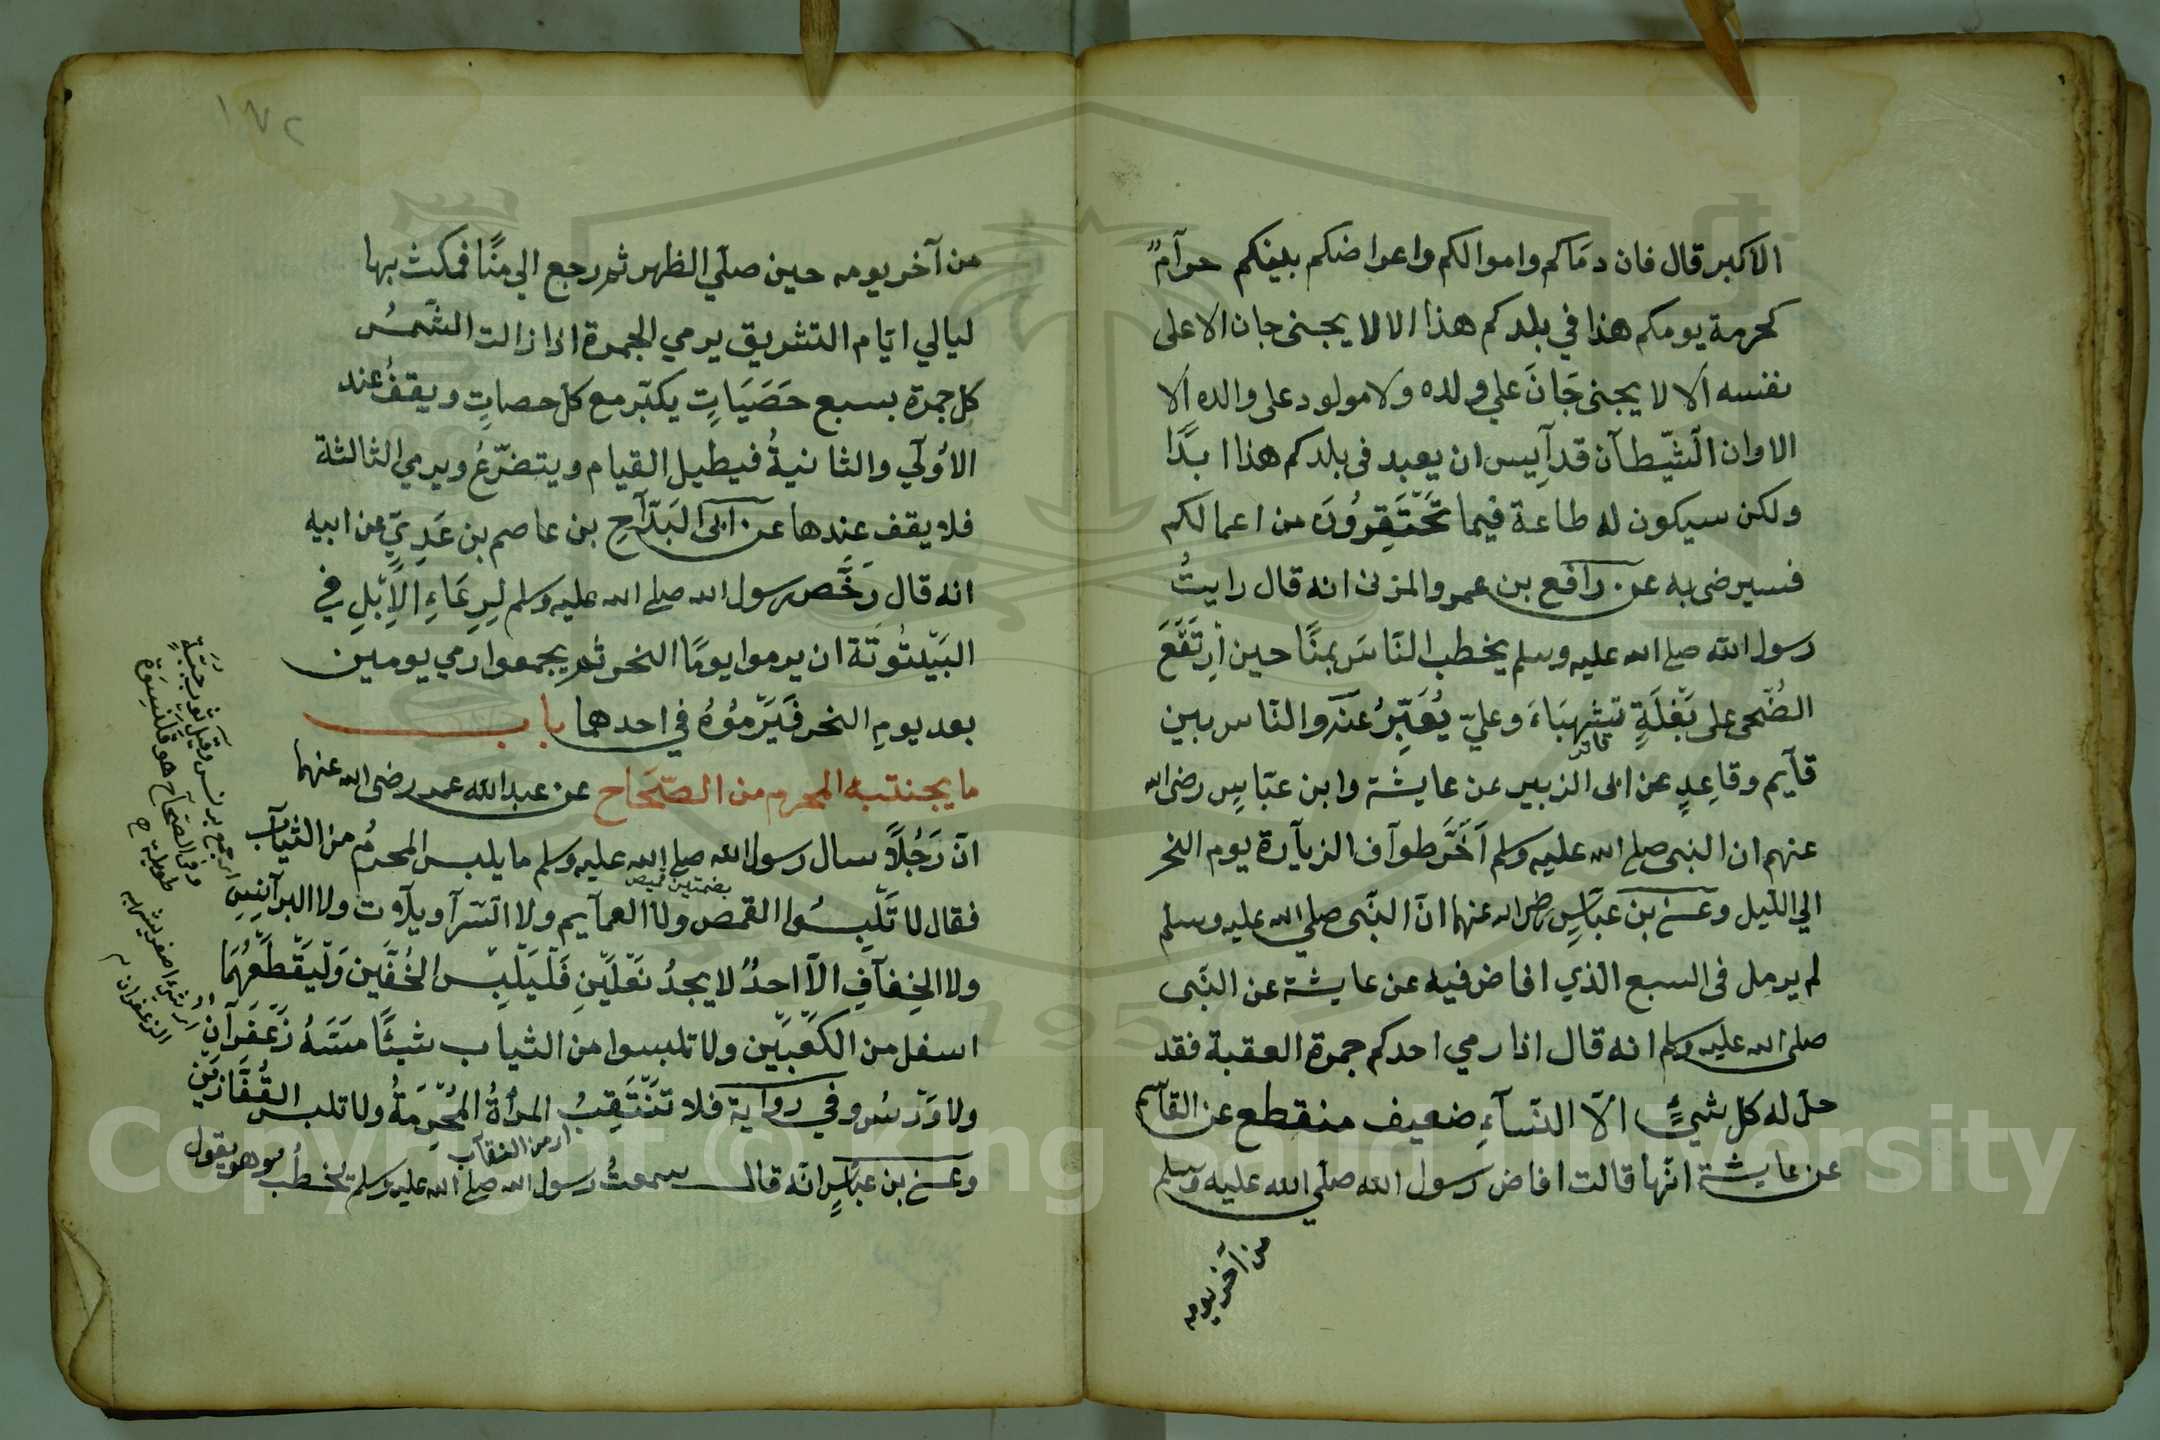 الاكبر قال فان دمَاكم واموالكم واعراضكم بينكم حرآمٌ
كحرمة يومكم هذا في بلدكم هذا الا لا يجنى جان الا على
نفسه الا لا يجنى جَانَ علي ولده ولا مولود على والده الا
الا وان الشّيطآن قد اَيِس ان يعبد فى بلدكم هذا ابدًا
ولكن سيكون له طاعة فيما تَحْتَقِرُونَ من اعمالكم
فسيرضى به عن رآفع بن عمرو المزنى انه قال رايتُ
رسول الله صلى الله عليه وسلم يخطب النّاسَ بمنًا حين اِرتَفَعَ
الضُّحى على بَغْلَةٍ شهبَاءَ وعليّ يُعَبِّرُ عنه والنّاس بين
قآيم وقاعِدٍ عن ابى الزبير عن عايشة وابن عبّاسٍ رضى الله
عنهم ان النبى صلى الله عليه وسلم اَخَّرَ طوآف الزيآرة يوم النحر
الي الليل وعن بن عبّاسٍ رضى الله عنهما انّ النّبى صلي الله عليه وسلم
لم يرمل فى السبع الّذي افاض فيه عن عايشة عن النّبى
صلى الله عليه وسلم انه قال اذا رمي احدكم جمرة العقبة فقد
حلّ له كل شيءٍ الاّ النّسآءِ ضعيف منقطع عن القآسم
عن عايشة انّها قالت افاض رسول الله صلّي الله عليه وسلم
من آخر يومه
١٧٢
من آخر يومه حين صلّي الظهر ثم رجع الي منًا فمكث بها
ليالي ايّام التشريق يرمي الجمرة اذا زالت الشّمسُ
كل جمرة بسبع حَصَيَاتٍ يكبّر مع كل حصاتٍ ويقفُ عند
الاُولَي والثانيةُ فيطيل القيام ويتضرّعُ ويرمي الثالثة
فلا يقف عندها عن ابى البَدّآحِ بن عاصم بن عَدِيّ عن ابيه
انه قال رَخَّص رسول الله صلى الله عليه وسلم لِرِعَاءِ الاِبْلِ في
البَيْتُوتَة ان يرموا يومًا النحر ثم يجمعوا رمي يومين
بعد يومِ النحر فَيَرْمُوُهُ في احدهما باب
ما يجنتبه المحرم من الصّحَاح عن عبد الله عمر رضى الله عنهما
انّ رَجُلاً سال رسول الله صلى الله عليه وسلم ما يلبس المحرمُ من الثيآب
فقال لا تَلْبِسُوا القمص ولا العمآيم ولا السّرآويلآت ولا البرآنِسِ
بضمتين قميص
ولا الخِفآفِ الاّ احدٌ لا يجدُ نَعْلَينِ فَلْيَلْبِسْ الخُفَّين وَلْيَقْطَعْهُمَا
اسفل من الكَعْبَيْن ولا تلبسوا من الثياب شيئًا مسَّهُ زَعْفَرآن
ولا وَرْسُ وفي رواية فلا تَنْتَقِبُ المرأةُ المُحْرِمَةُ ولا تلبس القُفَّازَيْن
اى من النقاب
وعن بن عبّاسٍ انّه قال سمعتُ رسول الله صلى الله عليه وسلم يخطُب وهو يقول
جمع برنس وقيل ثوب
وفى الصحآح هو قلنسوة
طويلة
الزعفران